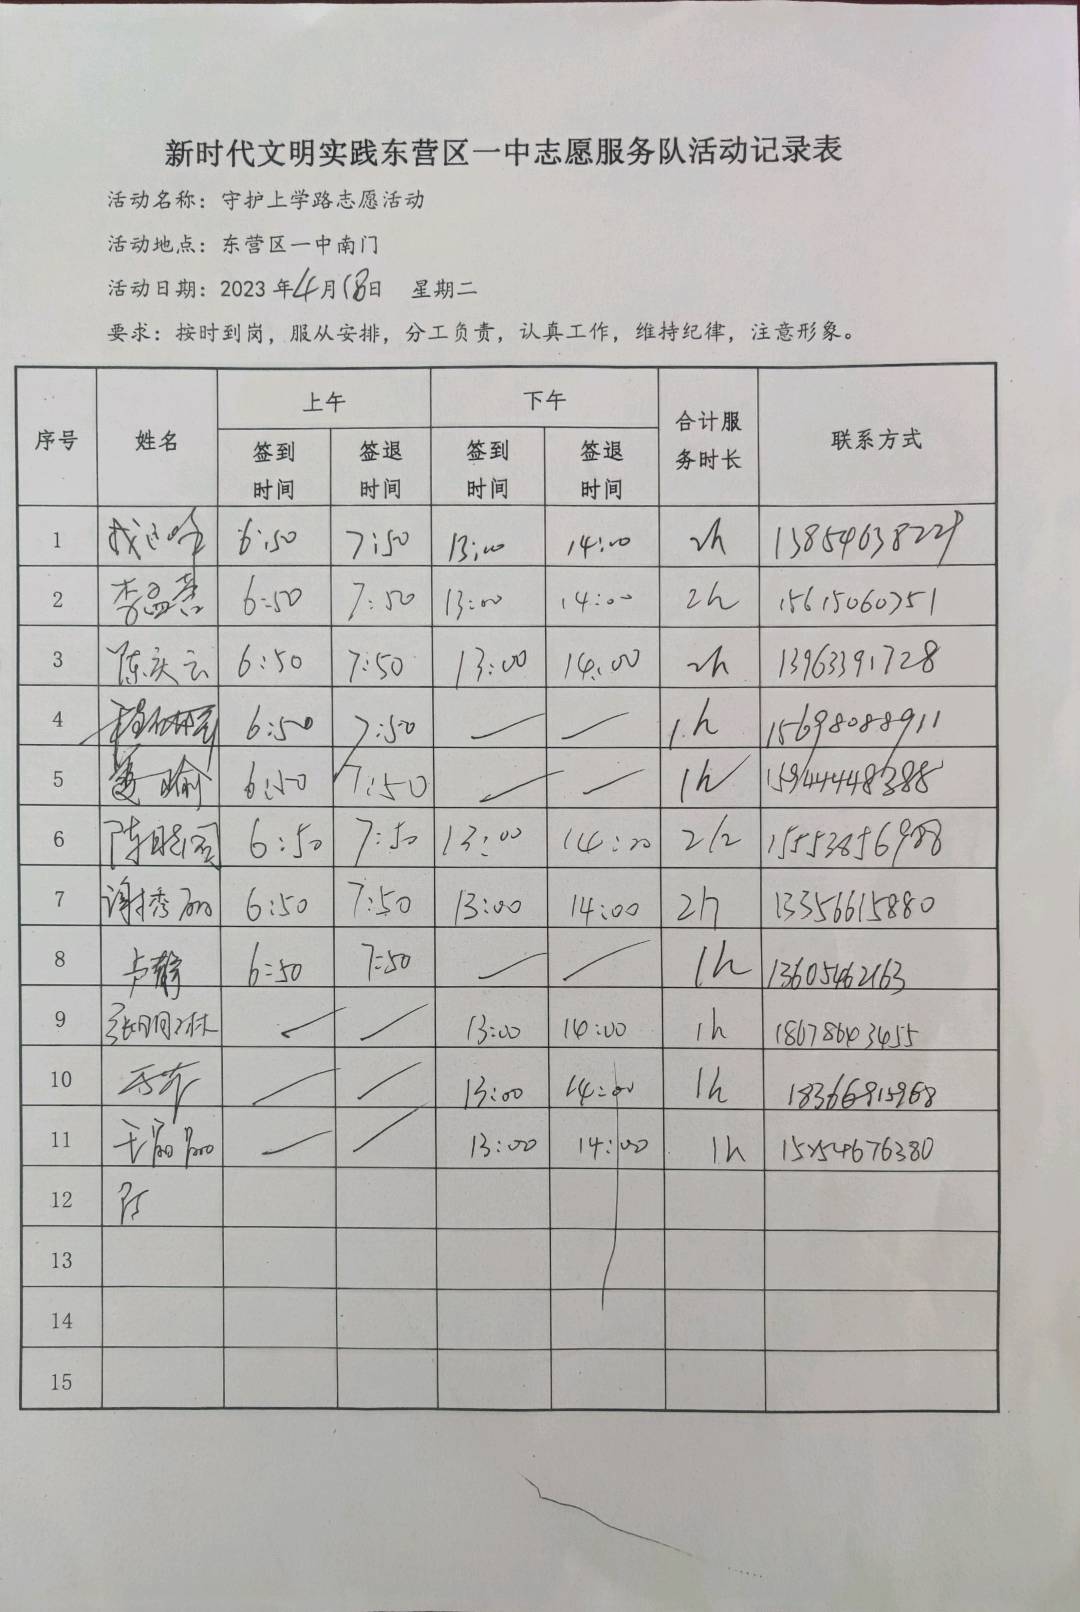 新时代文明实践东营区一中志愿服务队活动记录表
活动名称：守护上学路志愿活动
活动地点：东营区一中南门
活动日期：2023年4月18日 星期二
要求：按时到岗，服从安排，分工负责，认真工作，维持纪律，注意形象。
序号 姓名 上午 下午 合计服务时长 联系方式
签到时间 签退时间 签到时间 签退时间
1 6:50 7:50 13:00 14:00 2h 13854638229
2 李孟蕾 6:50 7:50 13:00 14:00 2h 15615060751
3 陈庆云 6:50 7:50 13:00 14:00 2h 13963391728
4 6:50 7:50 — — 1h 15698088911
5 姜瑜 6:50 7:50 — — 1h 15944448388
6 陈晓雪 6:50 7:50 13:00 14:00 2h 15553856988
7 谢秀丽 6:50 7:50 13:00 14:00 2h 13356615880
8 卢静 6:50 7:50 — — 1h 13605462163
9 — — 13:00 14:00 1h 18678643455
10 — — 13:00 14:00 1h 18366815968
11 王丽丽 — — 13:00 14:00 1h 15254676380
12
13
14
15